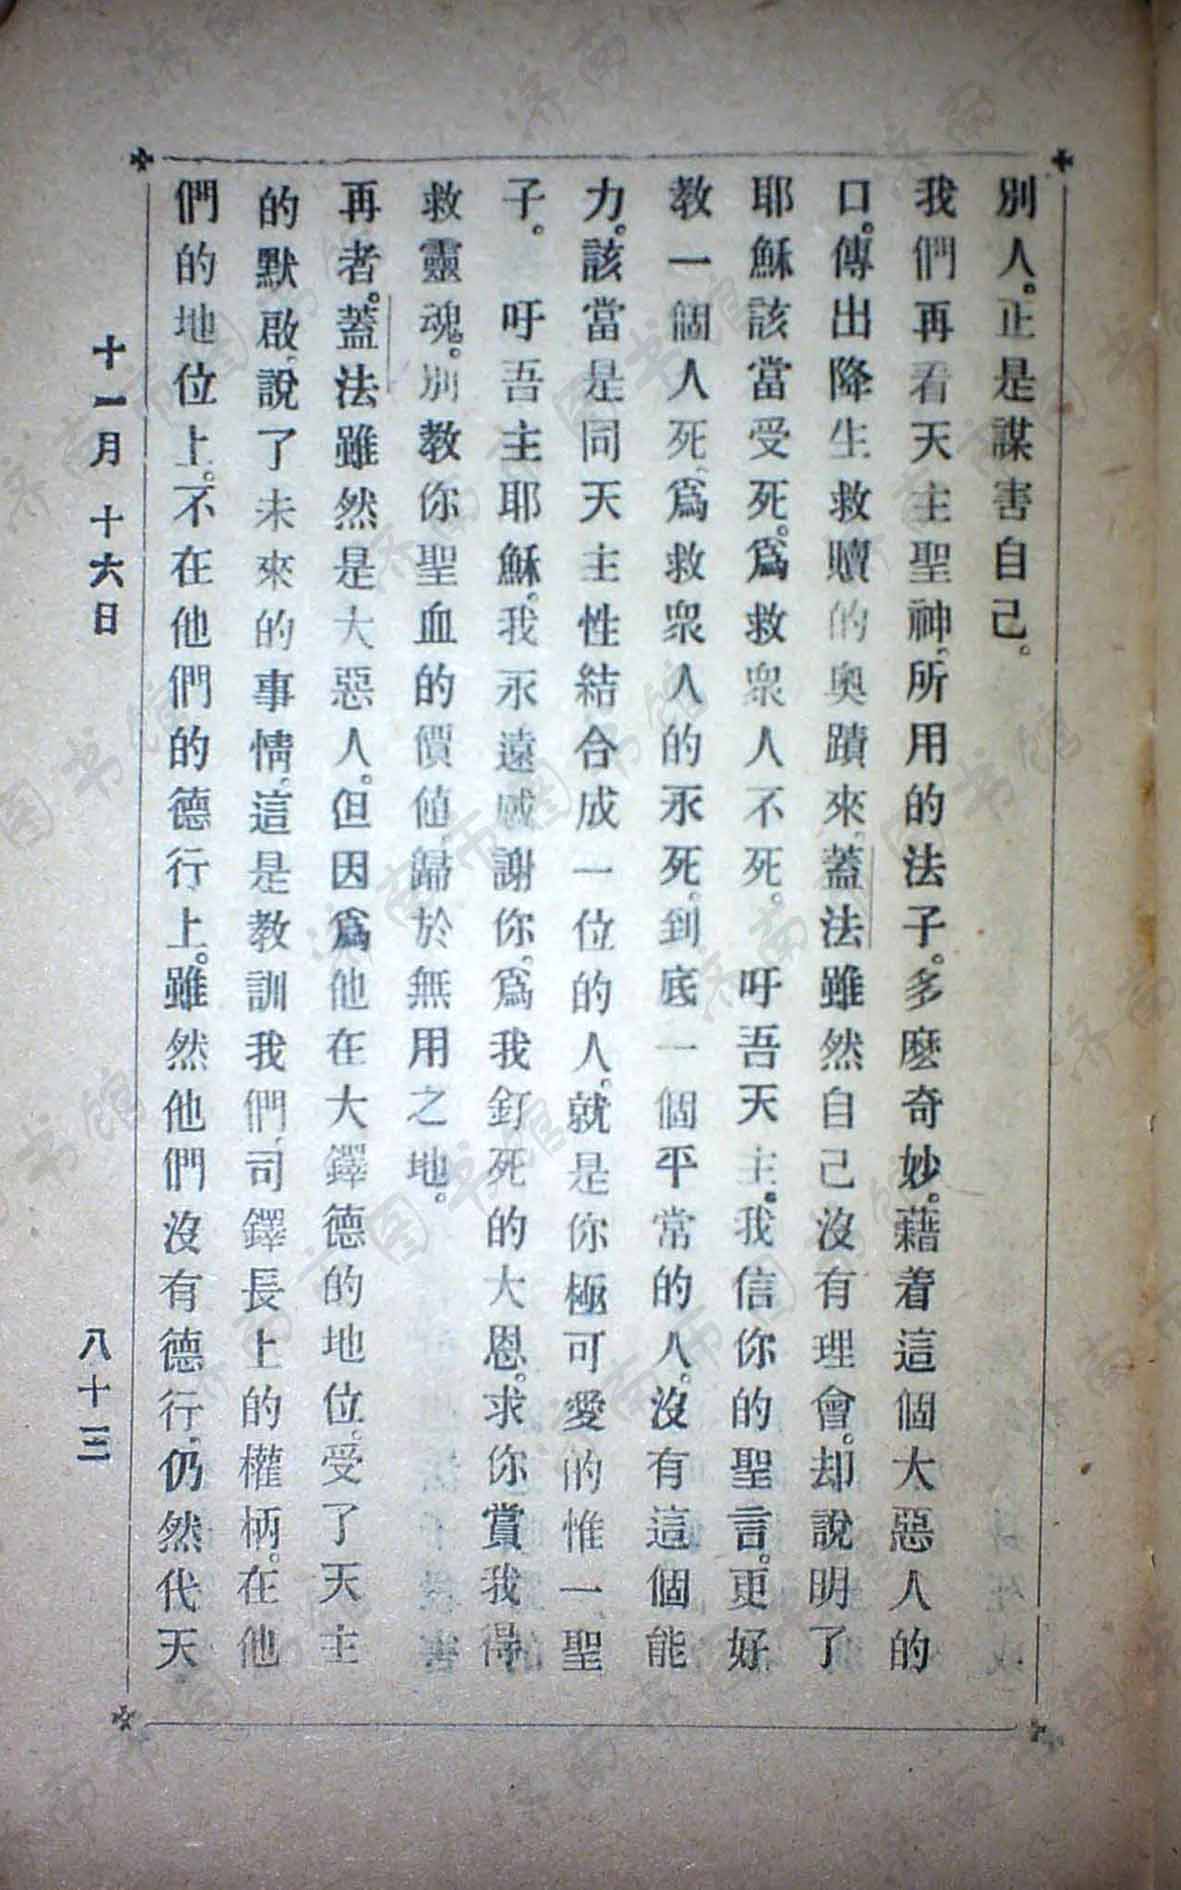 別人。正是謀害自己。
我們再看天主聖神、所用的法子。多麽奇妙。藉着這個大惡人的
口。傳出降生救贖的奧蹟來、蓋法雖然自己沒有理會。却說明了
耶穌該當受死。爲救衆人不死。吁吾天主。我信你的聖言。更好
教一個人死、爲救衆人的永死。到底一個平常的人。沒有這個能
力。該當是同天主性結合成一位的人。就是你極可愛的惟一聖
子。吁吾主耶穌。我永遠感謝你、爲我釘死的大恩。求你賞我得
救靈魂。別教你聖血的價値、歸於無用之地。
再者。蓋法雖然是大惡人。但因爲他在大鐸德的地位、受了天主
的默啟、說了未來的事情、這是教訓我們、司鐸長上的權柄。在他
們的地位上。不在他們的德行上。雖然他們沒有德行、仍然代天
十一月 十六日 八十三
济南市图书馆